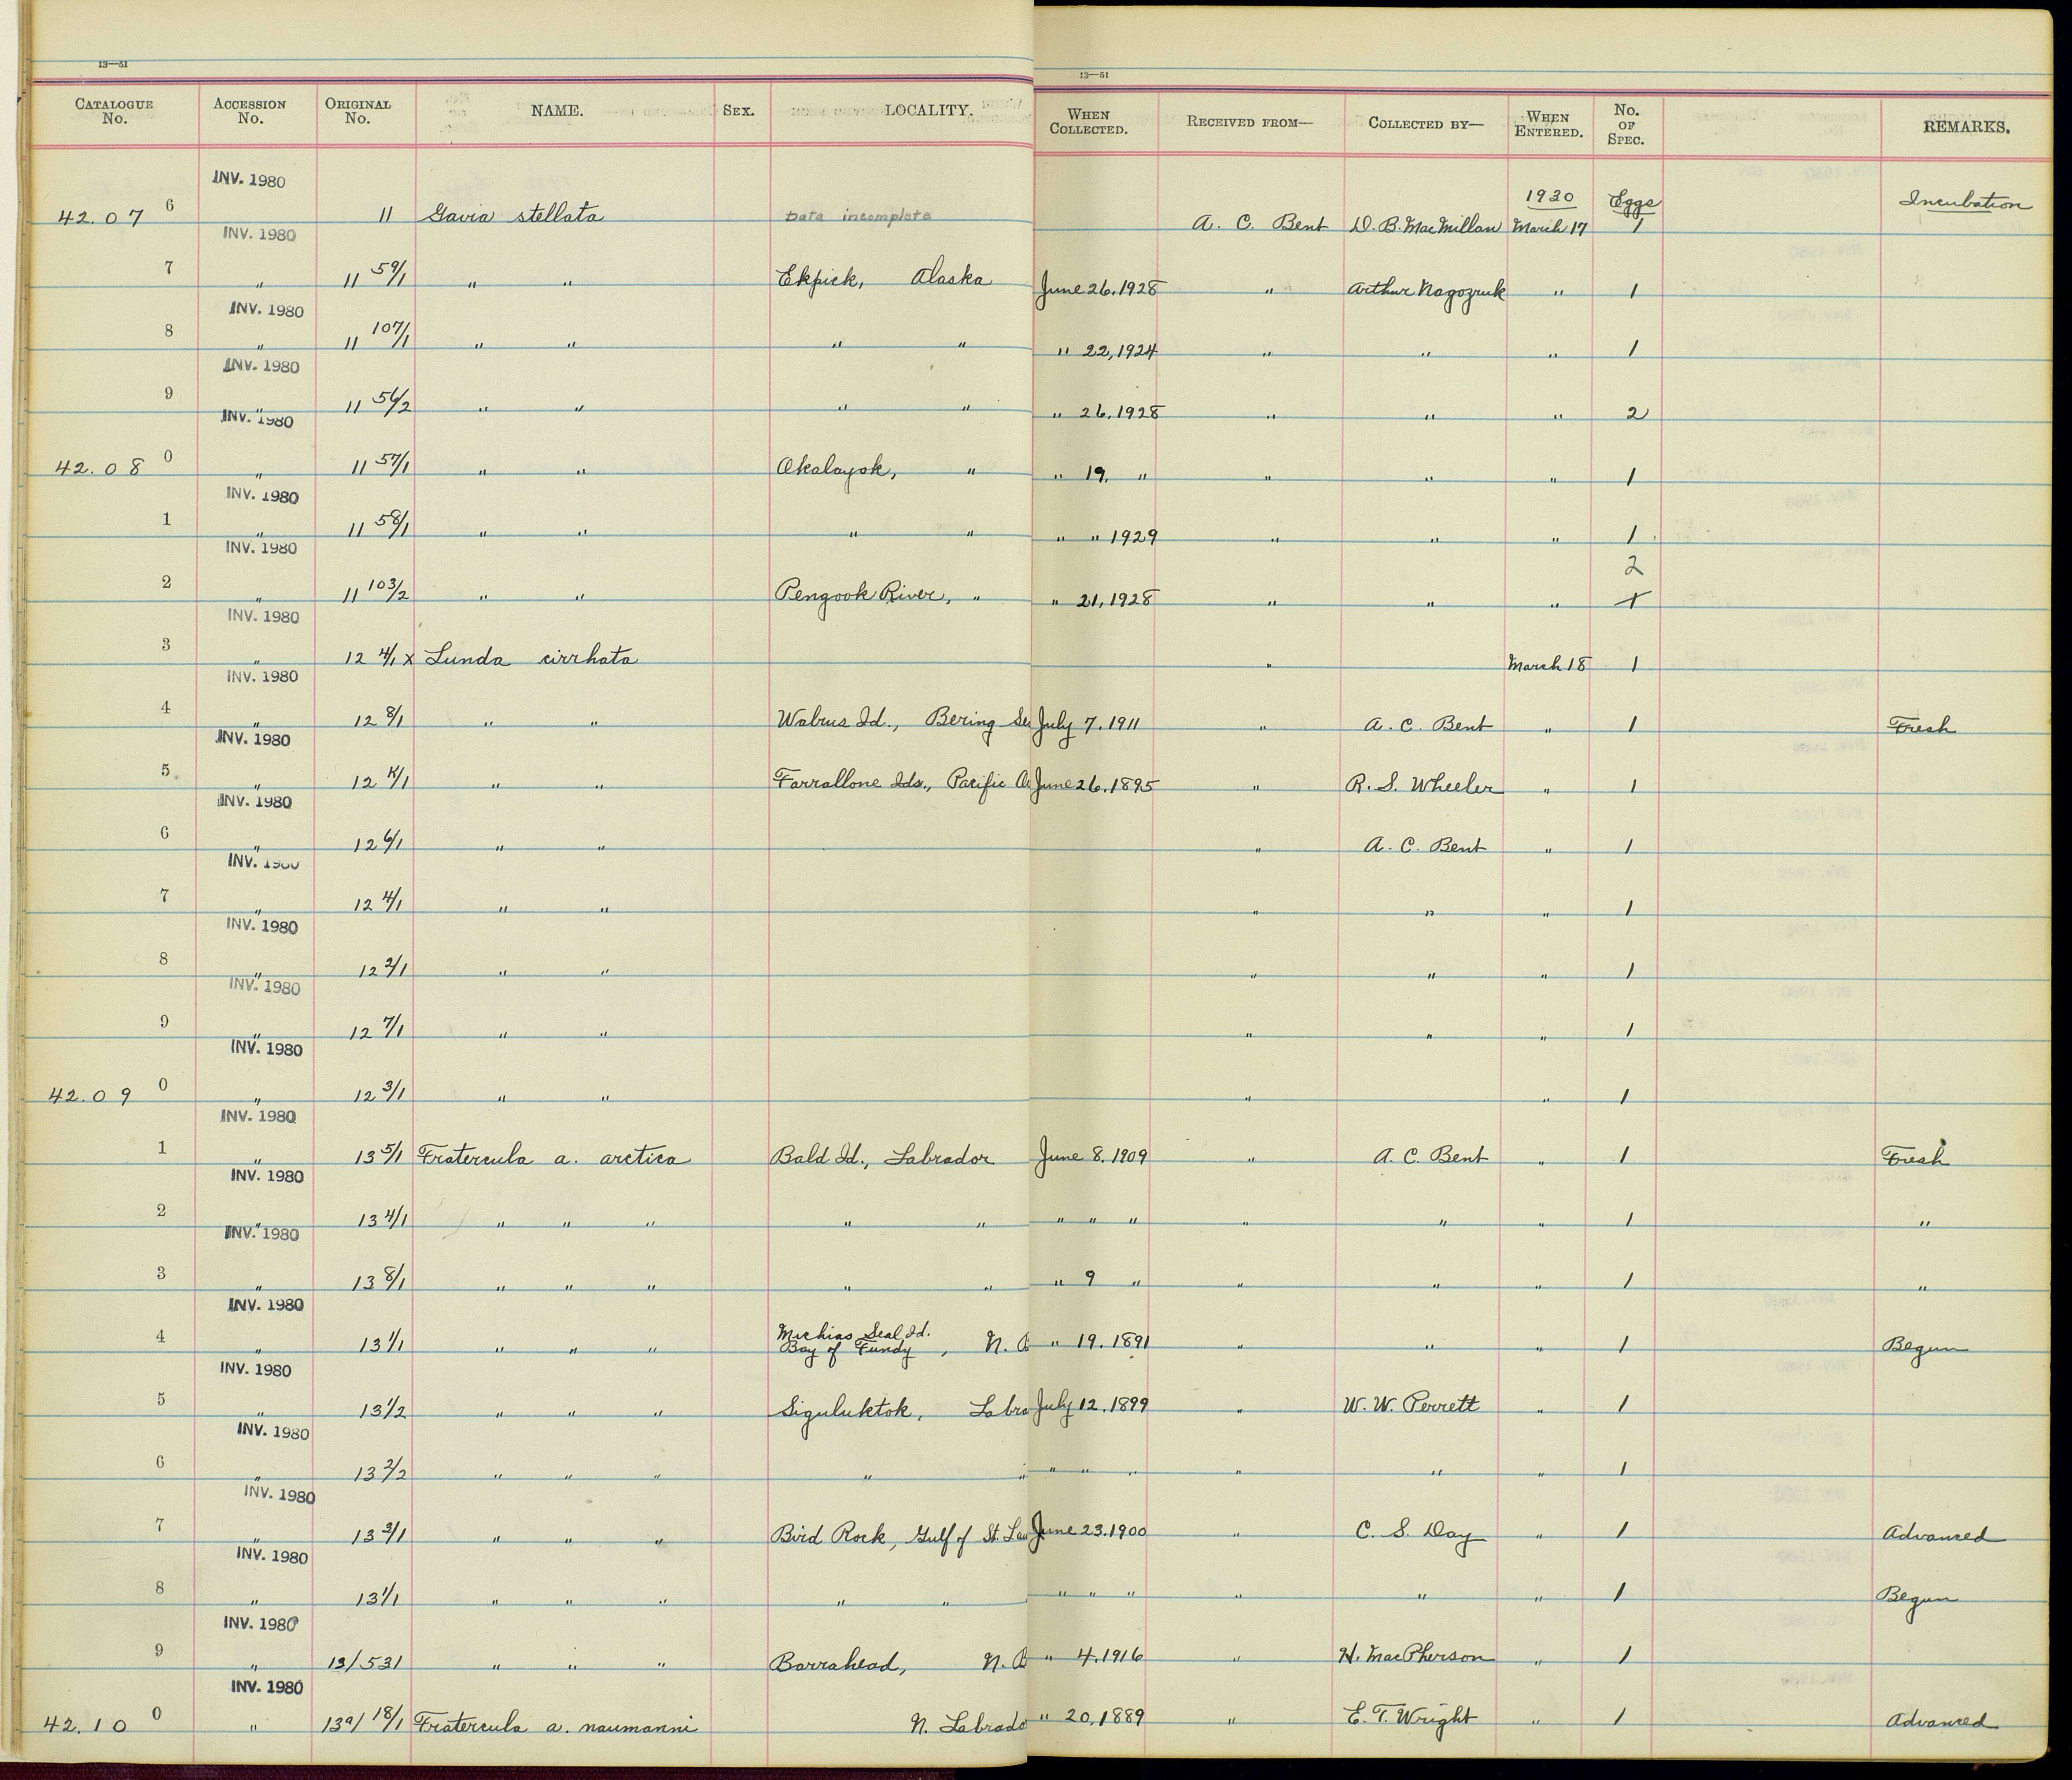 13—51
13—51
CATALOGUE No. ACCESSION No. ORIGINAL No. NAME. SEX. LOCALITY. WHEN COLLECTED. RECEIVED FROM— COLLECTED BY— WHEN ENTERED. No. OF SPEC. REMARKS.
INV. 1980
1930 Eggs Incubation
42.07 6 11 Gavia stellata Data incomplete A. C. Bent D. B. MacMillan March 17 1
INV. 1980
7 " 11 59/1 " " Ekpick, Alaska June 26, 1928 " Arthur Nagozruk " 1
INV. 1980
8 " 11 107/1 " " " " " 22, 1924 " " " 1
INV. 1980
9 " 11 56/2 " " " " " 26, 1928 " " " 2
INV. 1980
42.08 0 " 11 57/1 " " Okalayok, " " 19, " " " " 1
INV. 1980
1 " 11 58/1 " " " " " " 1929 " " " 1
INV. 1980
2
2 " 11 103/2 " " Pengook River, " " 21, 1928 " " " 1
INV. 1980
3 " 12 4/1 x Lunda cirrhata " March 18 1
INV. 1980
4 " 12 8/1 " " Walrus Id., Bering Se July 7, 1911 " A. C. Bent " 1 Fresh
INV. 1980
5 " 12 K/1 " " Farrallone Ids., Pacific Oc June 26, 1895 " R. S. Wheeler " 1
INV. 1980
6 " 12 6/1 " " " A. C. Bent " 1
INV. 1980
7 " 12 4/1 " " " " " 1
INV. 1980
8 " 12 2/1 " " " " " 1
INV. 1980
9 " 12 7/1 " " " " " 1
INV. 1980
42.09 0 " 12 3/1 " " " " 1
INV. 1980
1 " 13 5/1 Fratercula a. arctica Bald Id., Labrador June 8, 1909 " A. C. Bent " 1 Fresh
INV. 1980
2 " 13 4/1 " " " " " " " " " " " 1 "
INV. 1980
3 " 13 8/1 " " " " " " 9 " " " " 1 "
INV. 1980
Michias Seal Id.
4 " 13 1/1 " " " Bay of Fundy, N. B " 19, 1891 " " " 1 Begun
INV. 1980
5 " 13 1/2 " " " Siguluktok, Labra July 12, 1899 " W. W. Perrett " 1
INV. 1980
6 " 13 2/2 " " " " " " " " " " " 1
INV. 1980
7 " 13 3/1 " " " Bird Rock, Gulf of St. Law June 23, 1900 " C. S. Day " 1 Advanced
INV. 1980
8 " 13 1/1 " " " " " " " " " " " 1 Begun
INV. 1980
9 " 13/531 " " " Barrahead, N. B " 4, 1916 " H. MacPherson " 1
INV. 1980
42.10 0 " 13a/ 18/1 Fratercula a. naumanni N. Labrado " 20, 1889 " E. T. Wright " 1 Advanced